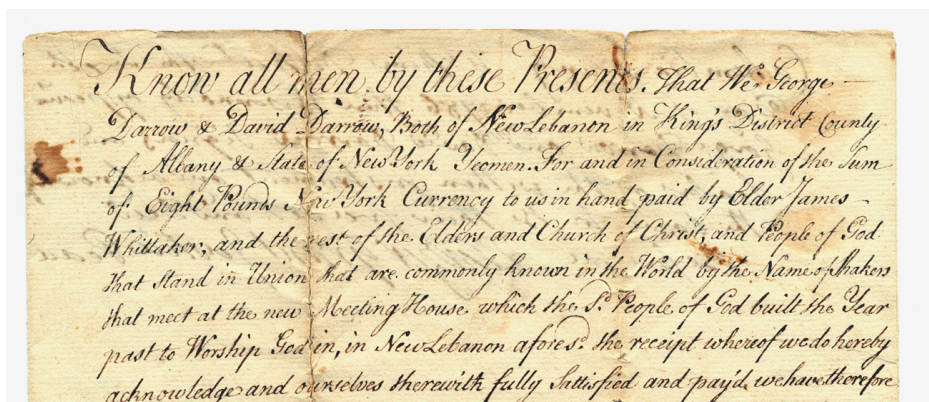 Know all men by these Presents. That We George
Darrow & David Darrow, Both of New Lebanon in King's District County
of Albany & State of New York Yeomen. For and in Consideration of the Sum
of Eight Pounds New York Currency to us in hand paid by Elder James
Whittaker, and the rest of the Elders and Church of Christ, and People of God
that stand in Union that are commonly known in the World by the Name of Shakers
that meet at the new Meeting House which the Sd. People of God built the Year
past to Worship God in, in New Lebanon aforesd. the receipt whereof we do hereby
acknowledge and ourselves therewith fully Sattisfied and pay'd, we have therefore